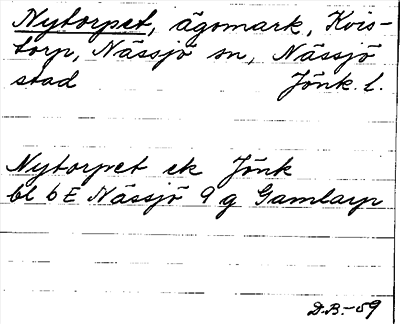 Nytorpet, ägomark, Kvis-
torp, Nässjö sn, Nässjö
stad Jönk. l.
Nytorpet ek Jönk
bl 6 E Nässjö 9 g Gamlarp
D.B.-59